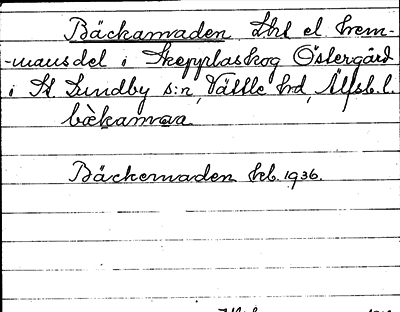 Bäckamaden. Lht el. hrem-
-mansdel i Skepplaskog Östergård
i St. Lundby s:n, Vättle hd, Älfsb. l.
bæ̀kamaa
Bäckemaden hcb. 1936.